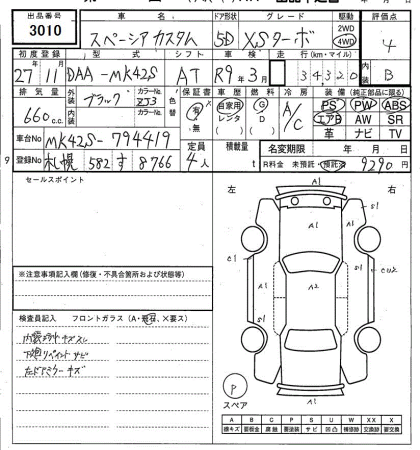 出品番号 車名 ドア形状 グレード 駆動 評価点
3010 スペーシアカスタム 5D XSターボ 2WD 4WD 4
初度登録 型式 シフト 車検 走行(km・マイル) 内装
27年11月 DAA-MK42S AT R9年3月 34320 B
排気量 外装 ブラック カラーNo. ZJ3 色替 保証書 車歴 燃料 冷房 装備(純正部品に限る)
660c.c. 内装 カラーNo. 有・無 自家用 レンタ G D A/C PS PW ABS
エアB AW SR
革 ナビ TV
車台No MK42S-794419 定員 積載量 名変期限 年 月 日
登録No 札幌 582 す 8766 4人 t R料金 未預託・預託済 9290円
セールスポイント
左 右
A1
A1
S1 S1
C1 A2 CU2
S1
A1
※注意事項記入欄(修復・不具合箇所および状態等)
検査員記入 フロントガラス(A・飛石、×要ス)
内装
下廻リペイント サビ
左ドアミラーキズ
P
スペア
A B C P S U W X XX ×
線キズ 要板金 腐蝕 要塗装 サビ 凹凸 補修跡 交換跡 要交換